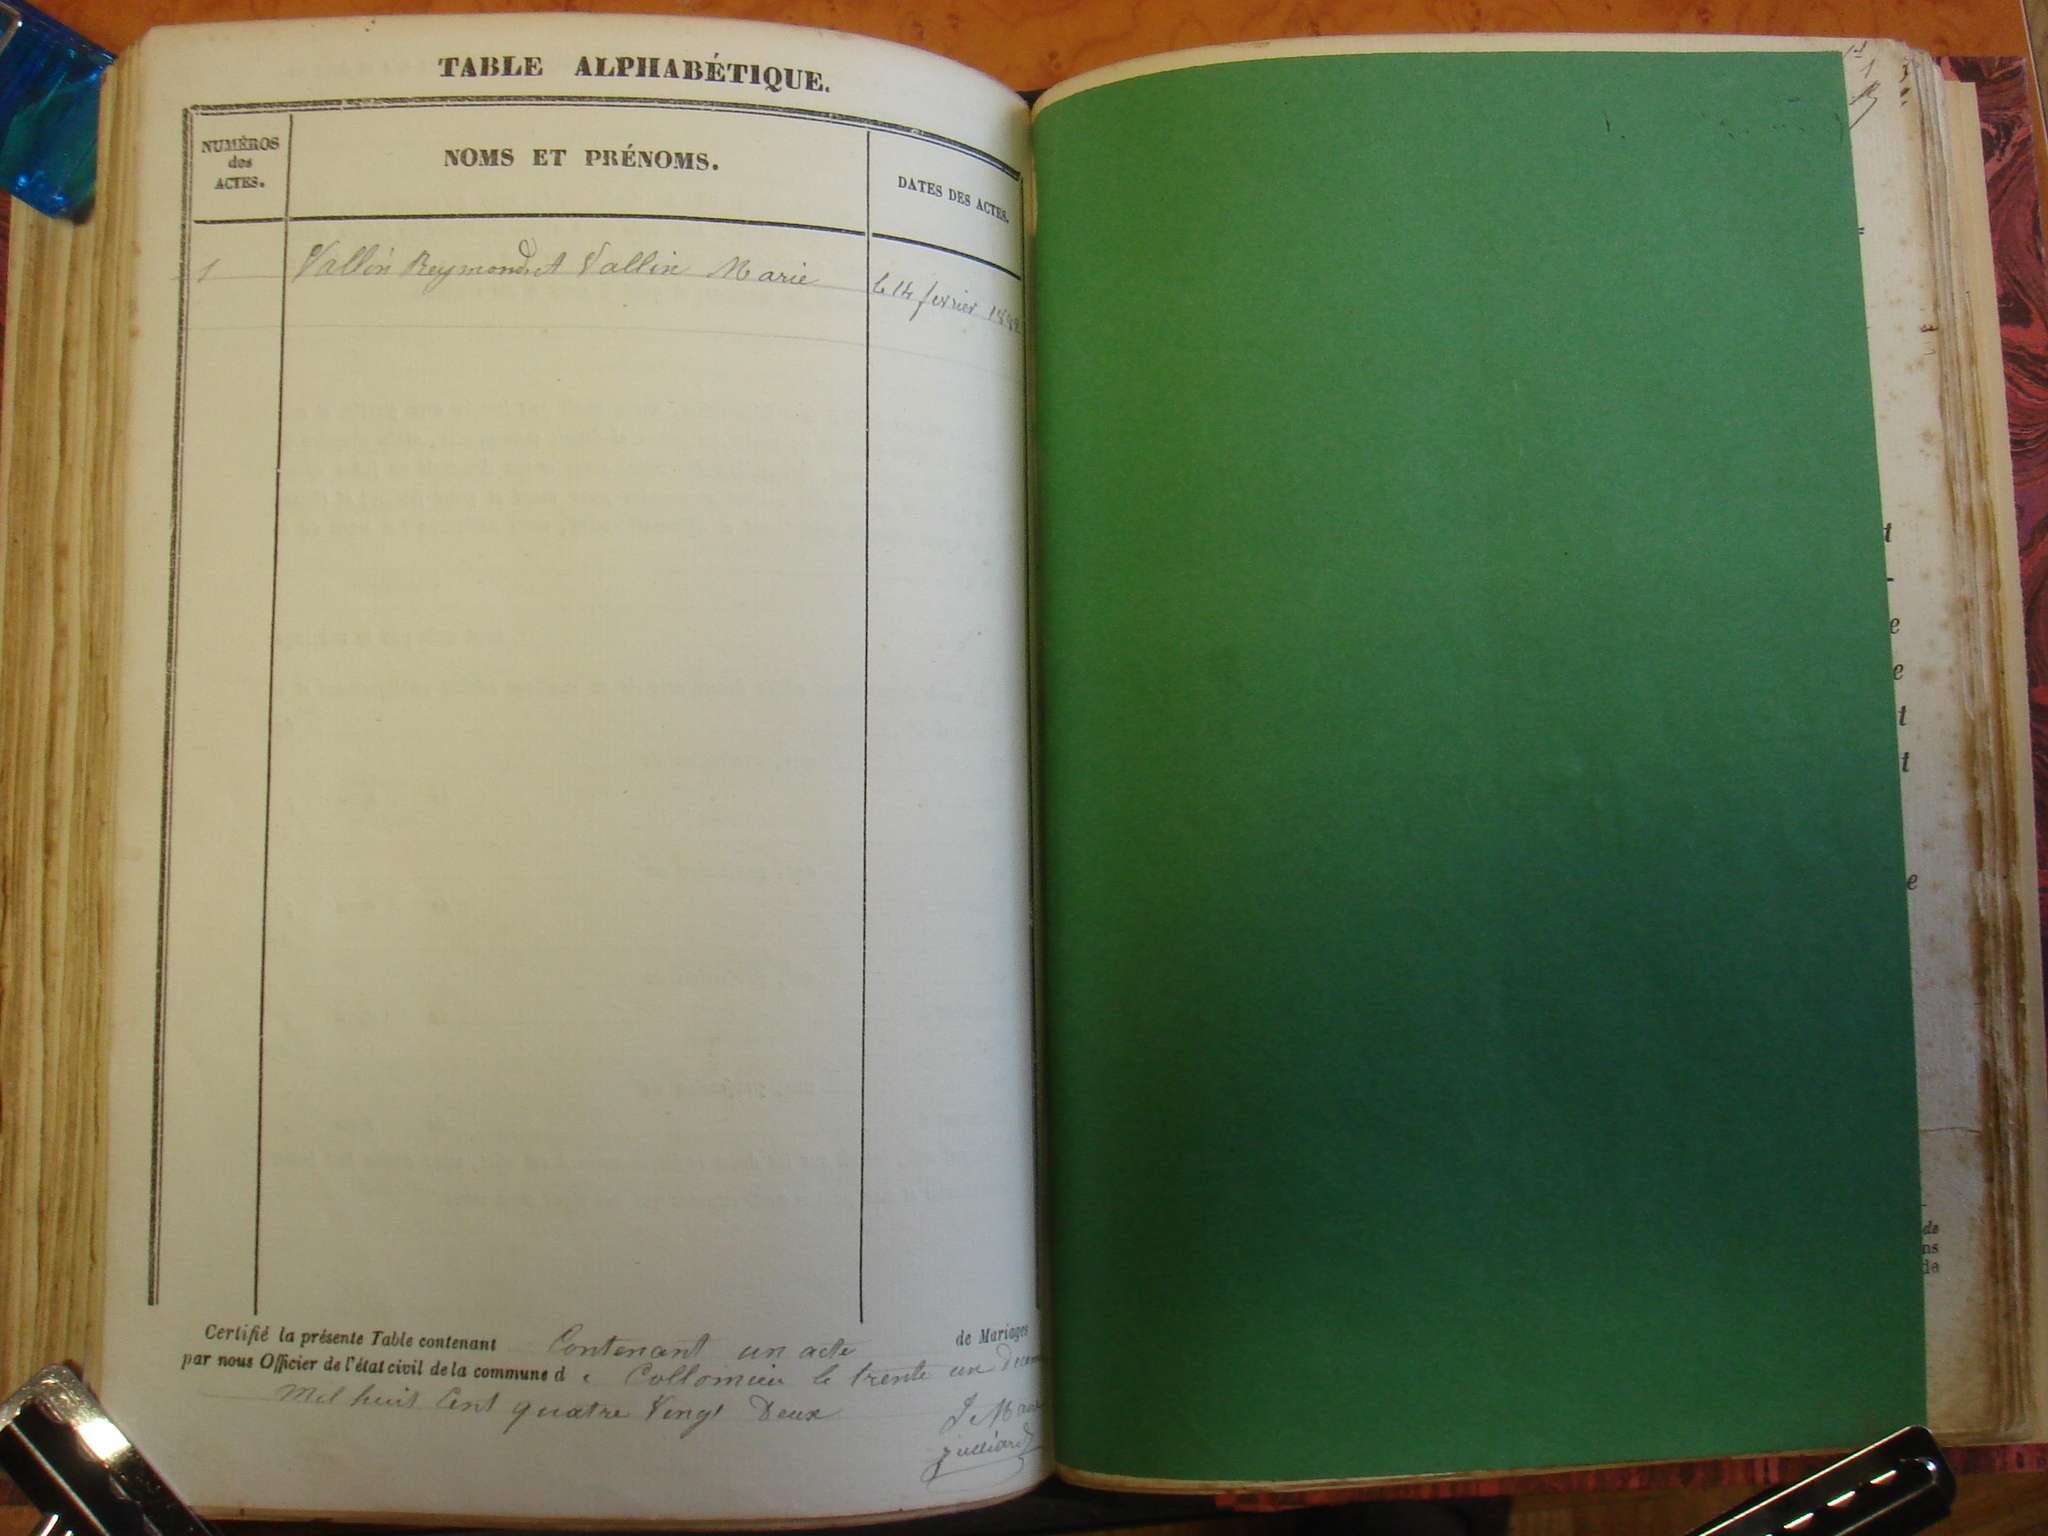 TABLE ALPHABÉTIQUE.
NUMÉROS
des
ACTES.
NOMS ET PRÉNOMS.
DATES DES ACTES.
1 Vallin Reymond et Vallin Marie le 14 fevrier 1882
Certifié la présente Table contenant Contenant un acte de Mariages
par nous Officier de l'état civil de la commune d e Collomieu le trente un Decem
Mil huit Cent quatre Vingt Deux
Le Maire
Julliard
t
-
e
e
t
t
e
de
ns
de